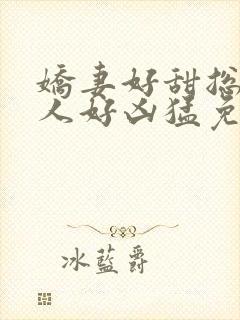 嬌妻好甜拋
人好凶猛免
冰藍爵